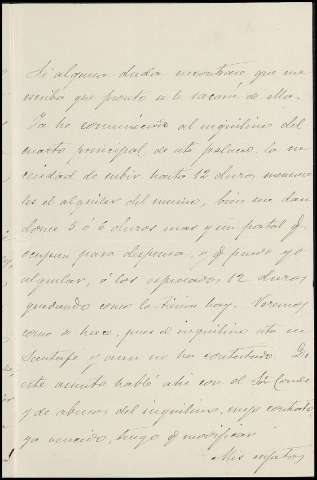 Si alguna duda encontrase que me
escriba que pronto se le sacará de ella.
Ya he comunicado al inquilino del
cuarto principal, de este palacio, la ne
cesidad de subir hasta 12 duros mensua
les el alquiler del mismo, bien me dan
dome 5 ó 6 duros mas y un patal q.
ocupan para despensa, y q. puedo yo
alquilar, ó los expresados 12 duros
quedando como lo tiene hoy. Veremos
como se hace, pues el inquilino esta en
Santafe y aun no ha contestado. De
este asunto hablé ahi con el Sr. Conde
y de abusos del inquilino, cuyo contrato
ya vencido, tengo q. modificar
Mis respetos